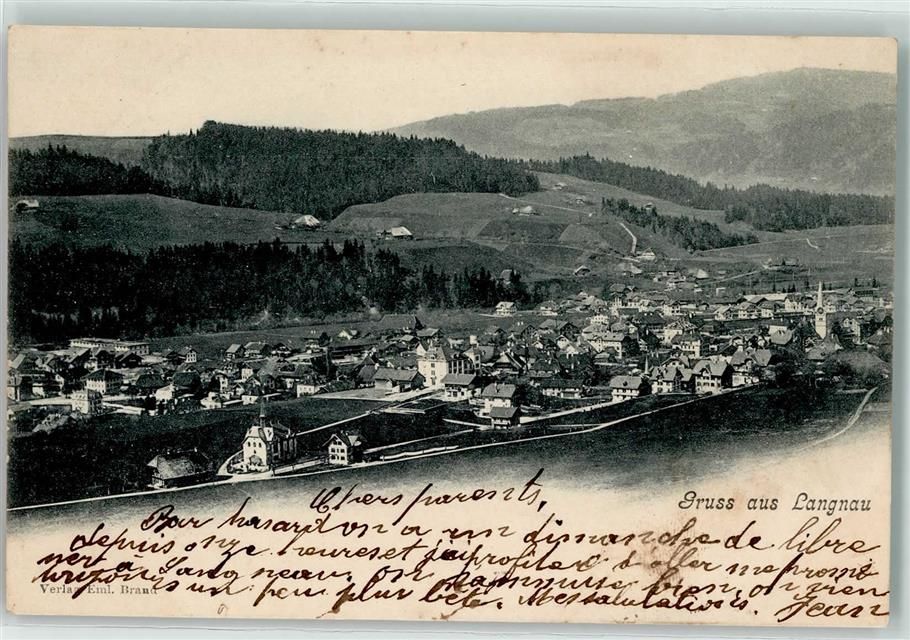 Gruss aus Langnau
Chers parents,
Par hasard on a un dimanche de libre
depuis onze heures et j'ai profité d'aller me prome
ner à Langneau. On s'ammuse bien, on rien
un peu plur bête. Mes salutations. Jean
Verlag Eml. Brand